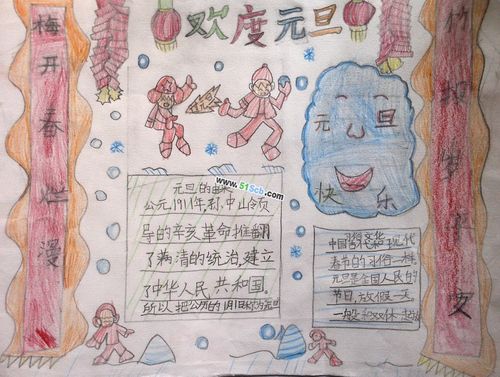 欢度元旦
梅开春烂漫
竹报
元旦
快乐
www.51Scb.com
元旦的由来
公元1911年,孙中山领
导的辛亥革命推翻
了满清的统治,建立
了中华人民共和国。
所以把公历的1月1日称为元旦
中国 现代
春节的习俗一样
元旦是全国人民的
节日,放假一天。
一般和双休